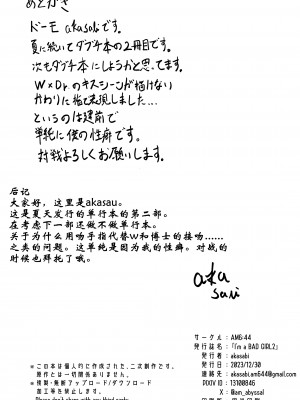 あとがき
ドーモ akasabiです。
夏に続いてダブチ本の2冊目です。
次もダブチ本にしようかと思ってます。
W×Dr.のキスシーンが描けない
かわりに指で表現しました…
というのは建前で
単純に僕の性癖です。
対戦よろしくお願いします。
后记
大家好，这里是akasau。
这是夏天发行的单行本的第二部。
在考虑下一部还做不做单行本。
关于为什么用吻手指代替W和博士的接吻……
之类的问题。这单纯是因为我的性癖。对战的
时候也拜托了哦。
aka
sabi
サークル：AM6:44
発行名：『I'm a BAD GIRL2』
発行者：akasabi
発行日：2023/12/30
連絡先：akasabi.am644@gmail.com
PIXIV ID：13100846
X：@an_abyssal
※この本は個人的に作成された、二次創作です。
原作とは一切関係ありません。
※複製・無断アップロード/ダウンロード
加工等を禁止します。